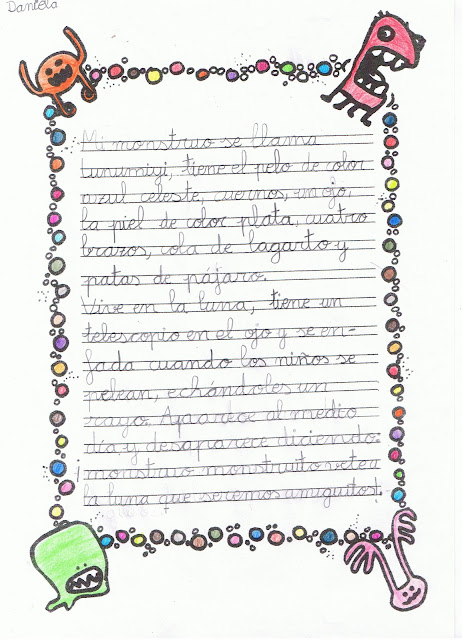 Daniela
Mi monstruo se llama
Lunumiyi, tiene el pelo de color
azul celeste, cuernos, un ojo,
la piel de color plata, cuatro
brazos, cola de lagarto y
patas de pájaro.
Vive en la luna, tiene un
telescopio en el ojo y se en-
fada cuando los niños se
pelean, echándoles un
rayo. Aparece al medio
día y desaparece diciendo:
¡monstruo monstruito vete a
la luna que seremos amiguitos!